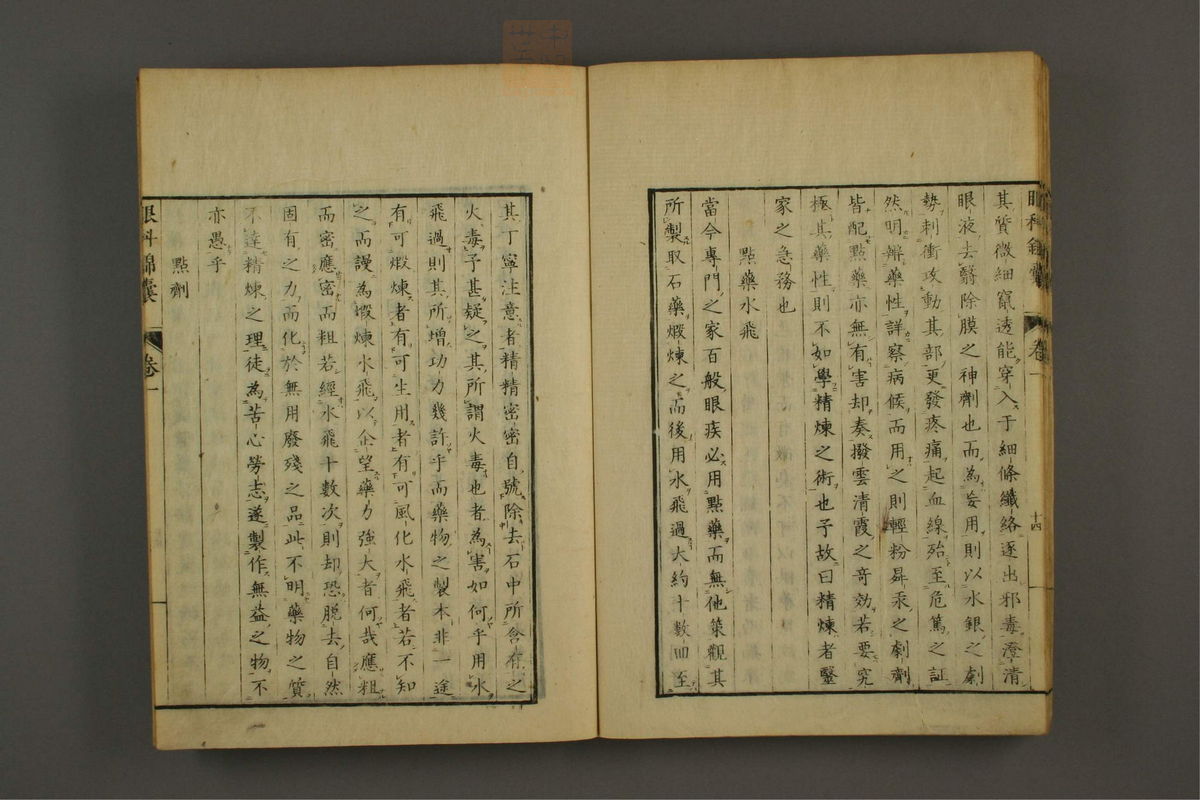 眼科錦囊 卷一 十四
其質微細竄透能穿入于細條纖絡逐出邪毒澄清
眼液去翳除膜之神劑也而為妄用則以水銀之劇
勢刺衝攻動其部更發疼痛起血線殆至危篤之証
然明辨藥性詳察病候而用之則輕粉昇汞之劇劑
皆配點藥亦無有害却奏撥雲清霞之奇効若要究
極其藥性則不如學精煉之術也予故曰精煉者毉
家之急務也
點藥水飛
當今專門之家百般眼疾必用點藥而無他策觀其
所製取石藥煅煉之而後用水飛過大約十數回至
其丁寧注意者精精密密自號除去石中所含有之
火毒予甚疑之其所謂火毒也者為害如何乎用水
飛過則其所增功力幾許乎而藥物之製本非一途
有可煅煉者有可生用者有可風化水飛者若不知
之而謾為煅煉水飛以企望藥力強大者何哉應粗
而密應密而粗若經水飛十數次則却恐脫去自然
固有之力而化於無用廢殘之品此不明藥物之質
不達精煉之理徒為苦心勞志遂製作無益之物不
亦愚乎
點劑
眼科錦囊 卷一